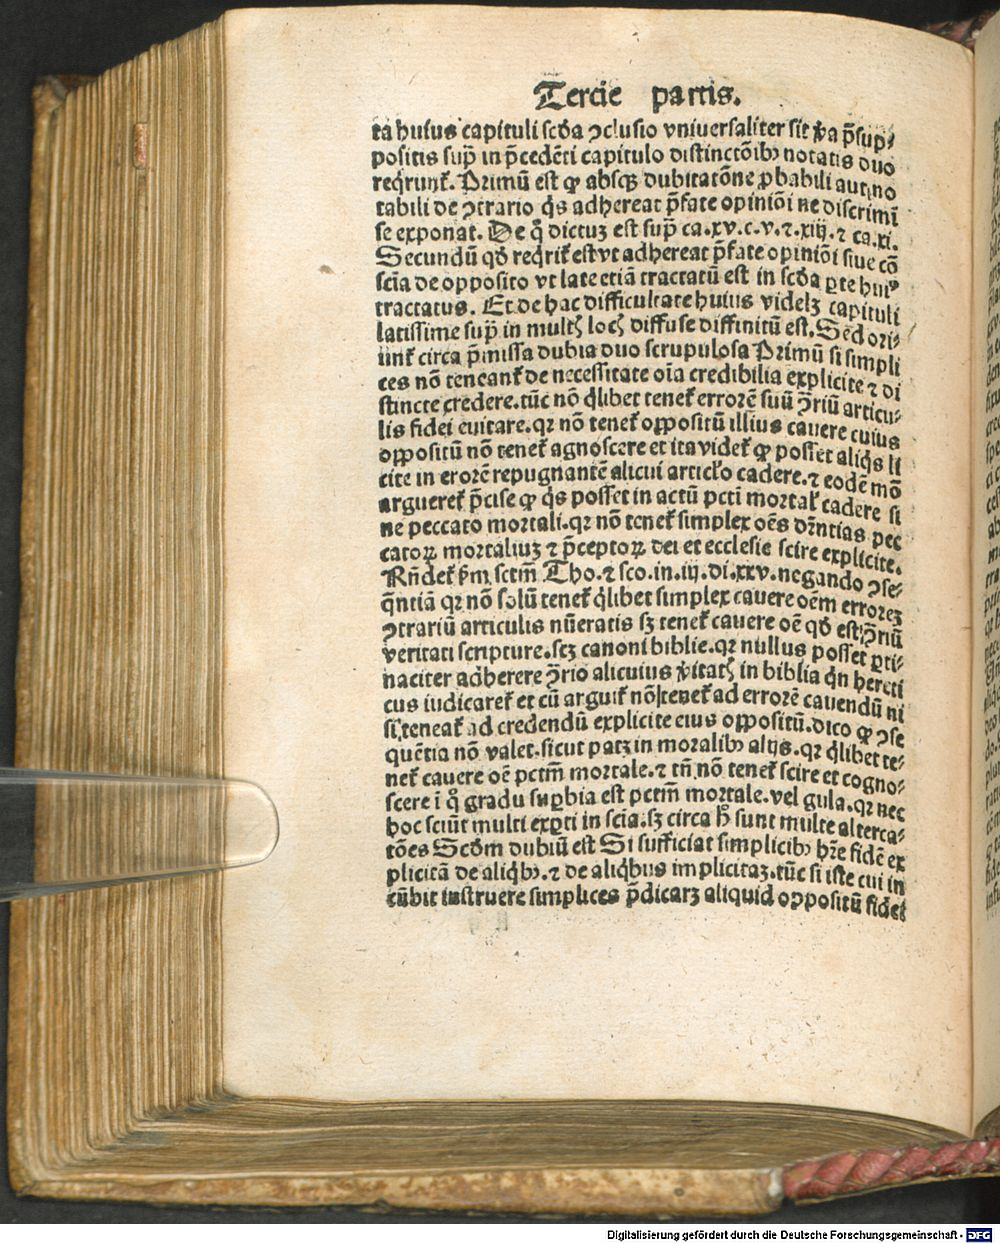 Tercie partis.
ta huius capituli scd̄a ꝯclusio vniuersaliter sit v̄a p̄sup⸗
positis sup̄ in p̄cedēti capitulo distinctōibꝫ notatis duo
reqͥrunt̄. Primū est ꝙ absqꝫ dubitatōne ꝓbabili aut no
tabili de ꝯtrario qͥs adhereat p̄fate opiniōi ne discrimī
se exponat. De qͣ dictuꝫ est sup̄ ca.xv.c.v.⁊.xiij.⁊ ca.xi.
Secundū qd̄ reqͥrit̄ est vt adhereat p̄fate opiniōi siue cō
sciā de opposito vt late etiā tractatū est in scd̄a ꝑte huiꝰ
tractatus. Et de hac difficultate huius videlꝫ capituli
latissime sup̄ in multꝭ locꝭ diffuse diffinitū est. Sed ori⸗
unt̄ circa p̄missa dubia duo scrupulosa Primū si simpli
ces nō teneant̄ de necessitate oīa credibilia explicite ⁊ di
stincte credere.tūc nō qͥlibet tenet̄ errorē suū ꝯ̄riū articu⸗
lis fidei euitare.qꝛ nō tenet̄ oppositū illius cauere cuius
oppositū nō tenet̄ agnoscere et ita videt̄ ꝙ posset aliqͥs li
cite in erorē repugnantē alicui articl̓o cadere.⁊ eodē mō
argueret̄ p̄cise ꝙ qͥs posset in actū pctī mortal̓ cadere si
ne peccato mortali.qꝛ nō tenet̄ simplex oēs dr̄ntias pec
catoꝝ mortaliuꝫ ⁊ p̄ceptoꝝ dei et ecclesie scire explicite.
Rn̄det̄ ẜm sctm̄ Tho.⁊ sco.in.iij.di.xxv.negando ꝯse⸗
q̄ntiā qꝛ nō solū tenet̄ qͥlibet simplex cauere oēm erroreꝫ
ꝯtrariū articulis nūeratis sꝫ tenet̄ cauere oē qd̄ est ꝯ̄riū
veritati scripture.scꝫ canoni biblie.qꝛ nullus posset ꝑti⸗
naciter adherere ꝯ̄rio alicuius v̄itatꝭ in biblia qͥn hereti
cus iudicaret̄ et cū arguit̄ nō tenet̄ ad errorē cauendū ni
si teneat̄ ad credendū explicite eius oppositū.dico ꝙ ꝯse
quētia nō valet.sicut patꝫ in moralibꝫ alijs.qꝛ qͥlibet te⸗
net̄ cauere oē pctm̄ mortale.⁊ tn̄ nō tenet̄ scire et cogno⸗
scere ī qͦ gradu suꝑbia est pctm̄ mortale.vel gula.qꝛ nec
hoc sciūt multi exꝑti in scīa.sꝫ circa hͦ sunt multe alterca⸗
tōes Scd̄m dubiū est Si sufficiat simplicibꝫ hr̄e fidē ex
plicitā de aliqͥbꝫ.⁊ de aliqͥbus implicitaꝫ.tūc si iste cui in
cūbit instruere simplices p̄dicaꝝ aliquid oppositū fidei
Digitalisierung gefördert durch die Deutsche Forschungsgemeinschaft - DFG